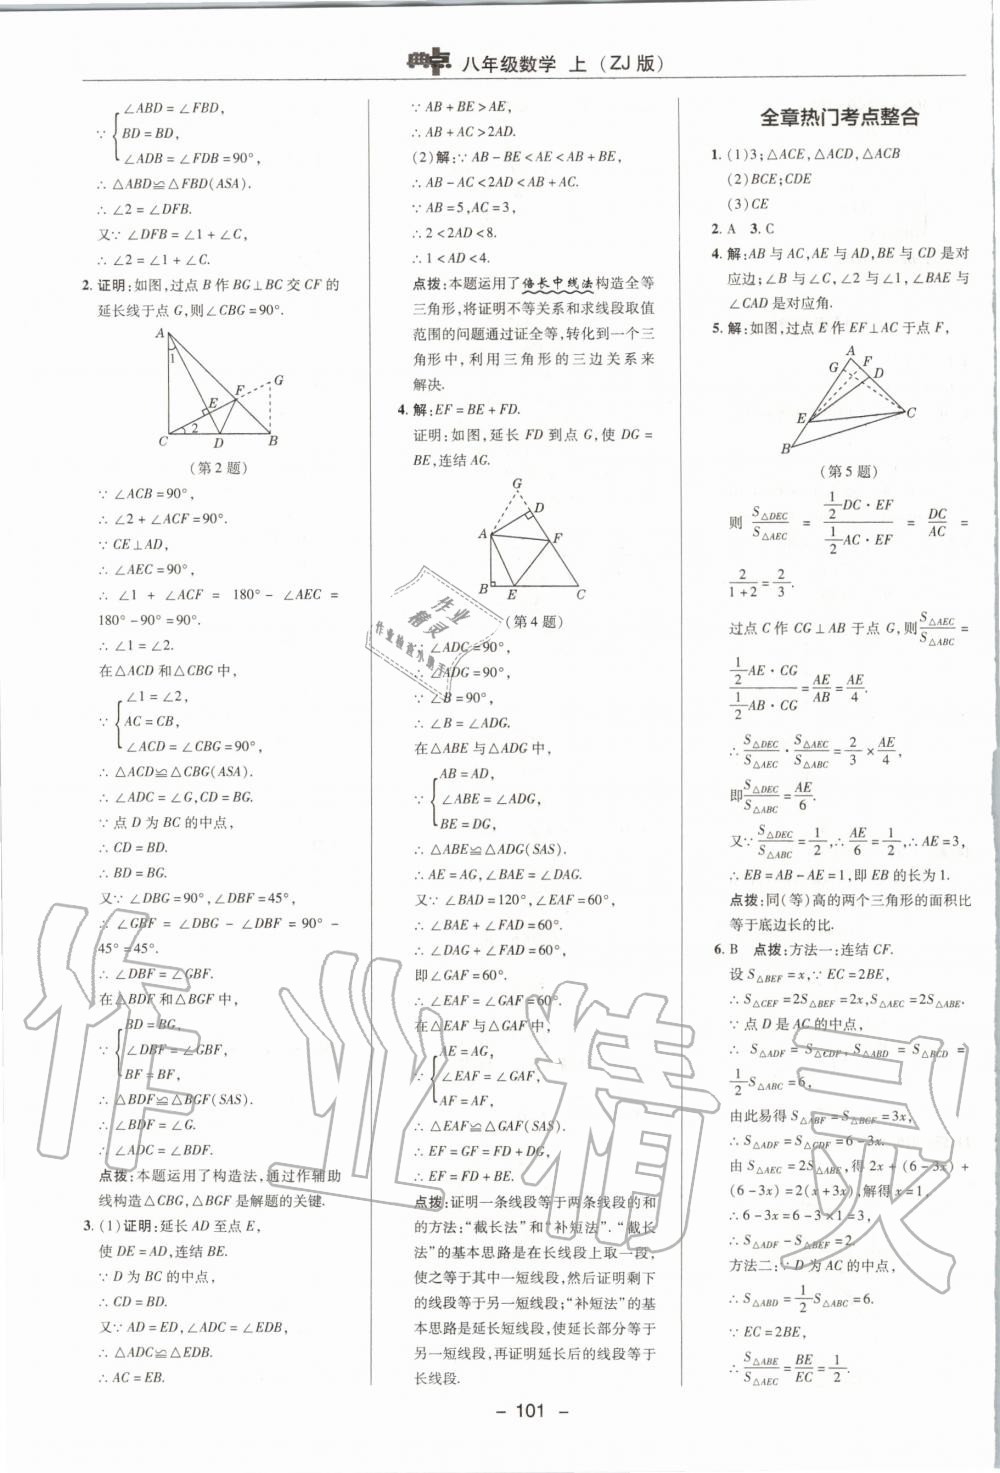 典点 八年级数学 上(ZJ版)
∵{∠ABD=∠FBD,
BD=BD,
∠ADB=∠FDB=90°,
∴△ABD≌△FBD(ASA).
∴∠2=∠DFB.
又∵∠DFB=∠1+∠C,
∴∠2=∠1+∠C.
2. 证明:如图,过点B作BG⊥BC交CF的
延长线于点G,则∠CBG=90°.
A
1
G
F
E
2
C D B
(第2题)
∵∠ACB=90°,
∴∠2+∠ACF=90°.
∵CE⊥AD,
∴∠AEC=90°,
∴∠1+∠ACF=180°-∠AEC=
180°-90°=90°.
∴∠1=∠2.
在△ACD和△CBG中,
∵{∠1=∠2,
AC=CB,
∠ACD=∠CBG=90°,
∴△ACD≌△CBG(ASA).
∴∠ADC=∠G,CD=BG.
∵点D为BC的中点,
∴CD=BD.
∴BD=BG.
又∵∠DBG=90°,∠DBF=45°,
∴∠GBF=∠DBG-∠DBF=90°-
45°=45°.
∴∠DBF=∠GBF.
在△BDF和△BGF中,
∵{BD=BG,
∠DBF=∠GBF,
BF=BF,
∴△BDF≌△BGF(SAS).
∴∠BDF=∠G.
∴∠ADC=∠BDF.
点拨:本题运用了构造法,通过作辅助
线构造△CBG,△BGF是解题的关键.
3. (1)证明:延长AD至点E,
使DE=AD,连结BE.
∵D为BC的中点,
∴CD=BD.
又∵AD=ED,∠ADC=∠EDB,
∴△ADC≌△EDB.
∴AC=EB.
∵AB+BE>AE,
∴AB+AC>2AD.
(2)解:∵AB-BE<AE<AB+BE,
∴AB-AC<2AD<AB+AC.
∵AB=5,AC=3,
∴2<2AD<8.
∴1<AD<4.
点拨:本题运用了倍长中线法构造全等
三角形,将证明不等关系和求线段取值
范围的问题通过证全等,转化到一个三
角形中,利用三角形的三边关系来
解决.
4. 解:EF=BE+FD.
证明:如图,延长FD到点G,使DG=
BE,连结AG.
G
D
A
F
B E C
(第4题)
∵∠ADC=90°,
∴∠ADG=90°.
∵∠B=90°,
∴∠B=∠ADG.
在△ABE与△ADG中,
∵{AB=AD,
∠ABE=∠ADG,
BE=DG,
∴△ABE≌△ADG(SAS).
∴AE=AG,∠BAE=∠DAG.
又∵∠BAD=120°,∠EAF=60°,
∴∠BAE+∠FAD=60°.
∴∠DAG+∠FAD=60°.
即∠GAF=60°.
∴∠EAF=∠GAF=60°.
在△EAF与△GAF中,
∵{AE=AG,
∠EAF=∠GAF,
AF=AF,
∴△EAF≌△GAF(SAS).
∴EF=GF=FD+DG,
∴EF=FD+BE.
点拨:证明一条线段等于两条线段的和
的方法:“截长法”和“补短法”.“截长
法”的基本思路是在长线段上取一段,
使之等于其中一短线段,然后证明剩下
的线段等于另一短线段;“补短法”的基
本思路是延长短线段,使延长部分等于
另一短线段,再证明延长后的线段等于
长线段.
全章热门考点整合
1. (1)3;△ACE,△ACD,△ACB
(2)BCE;CDE
(3)CE
2. A 3. C
4. 解:AB与AC,AE与AD,BE与CD是对
应边;∠B与∠C,∠2与∠1,∠BAE与
∠CAD是对应角.
5. 解:如图,过点E作EF⊥AC于点F,
A
G F
D
E
C
B
(第5题)
则 S△DEC/S△AEC = (1/2 DC·EF)/(1/2 AC·EF) = DC/AC =
2/(1+2)=2/3.
过点C作CG⊥AB于点G,则S△AEC/S△ABC=
(1/2 AE·CG)/(1/2 AB·CG)=AE/AB=AE/4.
∴S△DEC/S△AEC·S△AEC/S△ABC=2/3×AE/4,
即S△DEC/S△ABC=AE/6.
又∵S△DEC/S△ABC=1/2,∴AE/6=1/2,∴AE=3,
∴EB=AB-AE=1,即EB的长为1.
点拨:同(等)高的两个三角形的面积比
等于底边长的比.
6. B 点拨:方法一:连结CF.
设S△BEF=x,∵EC=2BE,
∴S△CEF=2S△BEF=2x,S△AEC=2S△ABE.
∵点D是AC的中点,
∴S△ADF=S△CDF,S△ABD=S△BCD=
1/2 S△ABC=6,
由此易得S△ABF=S△BCF=3x,
∴S△ADF=S△CDF=6-3x.
由S△AEC=2S△ABE,得2x+(6-3x)+
(6-3x)=2(x+3x),解得x=1,
∴6-3x=6-3×1=3,
∴S△ADF-S△BEF=2.
方法二:∵D为AC的中点,
∴S△ABD=1/2 S△ABC=6.
∵EC=2BE,
∴S△ABE/S△AEC=BE/EC=1/2.
- 101 -
作业精灵
作业
精灵